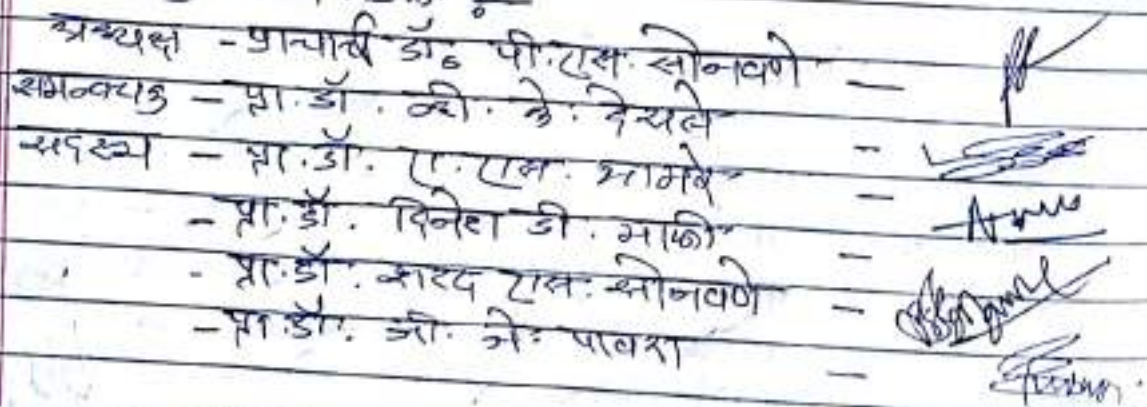 अध्यक्ष - प्राचार्य डॉ. पी. एस. सोनवणे -
समन्वयक - प्रा. डॉ. व्ही. के. देसले -
सदस्य - प्रा. डॉ. ए. एस. भामरे -
- प्रा. डॉ. दिनेश डी. माळी -
- प्रा. डॉ. शरद एस. सोनवणे -
- प्रा. डॉ. जी. जे. पावरा -